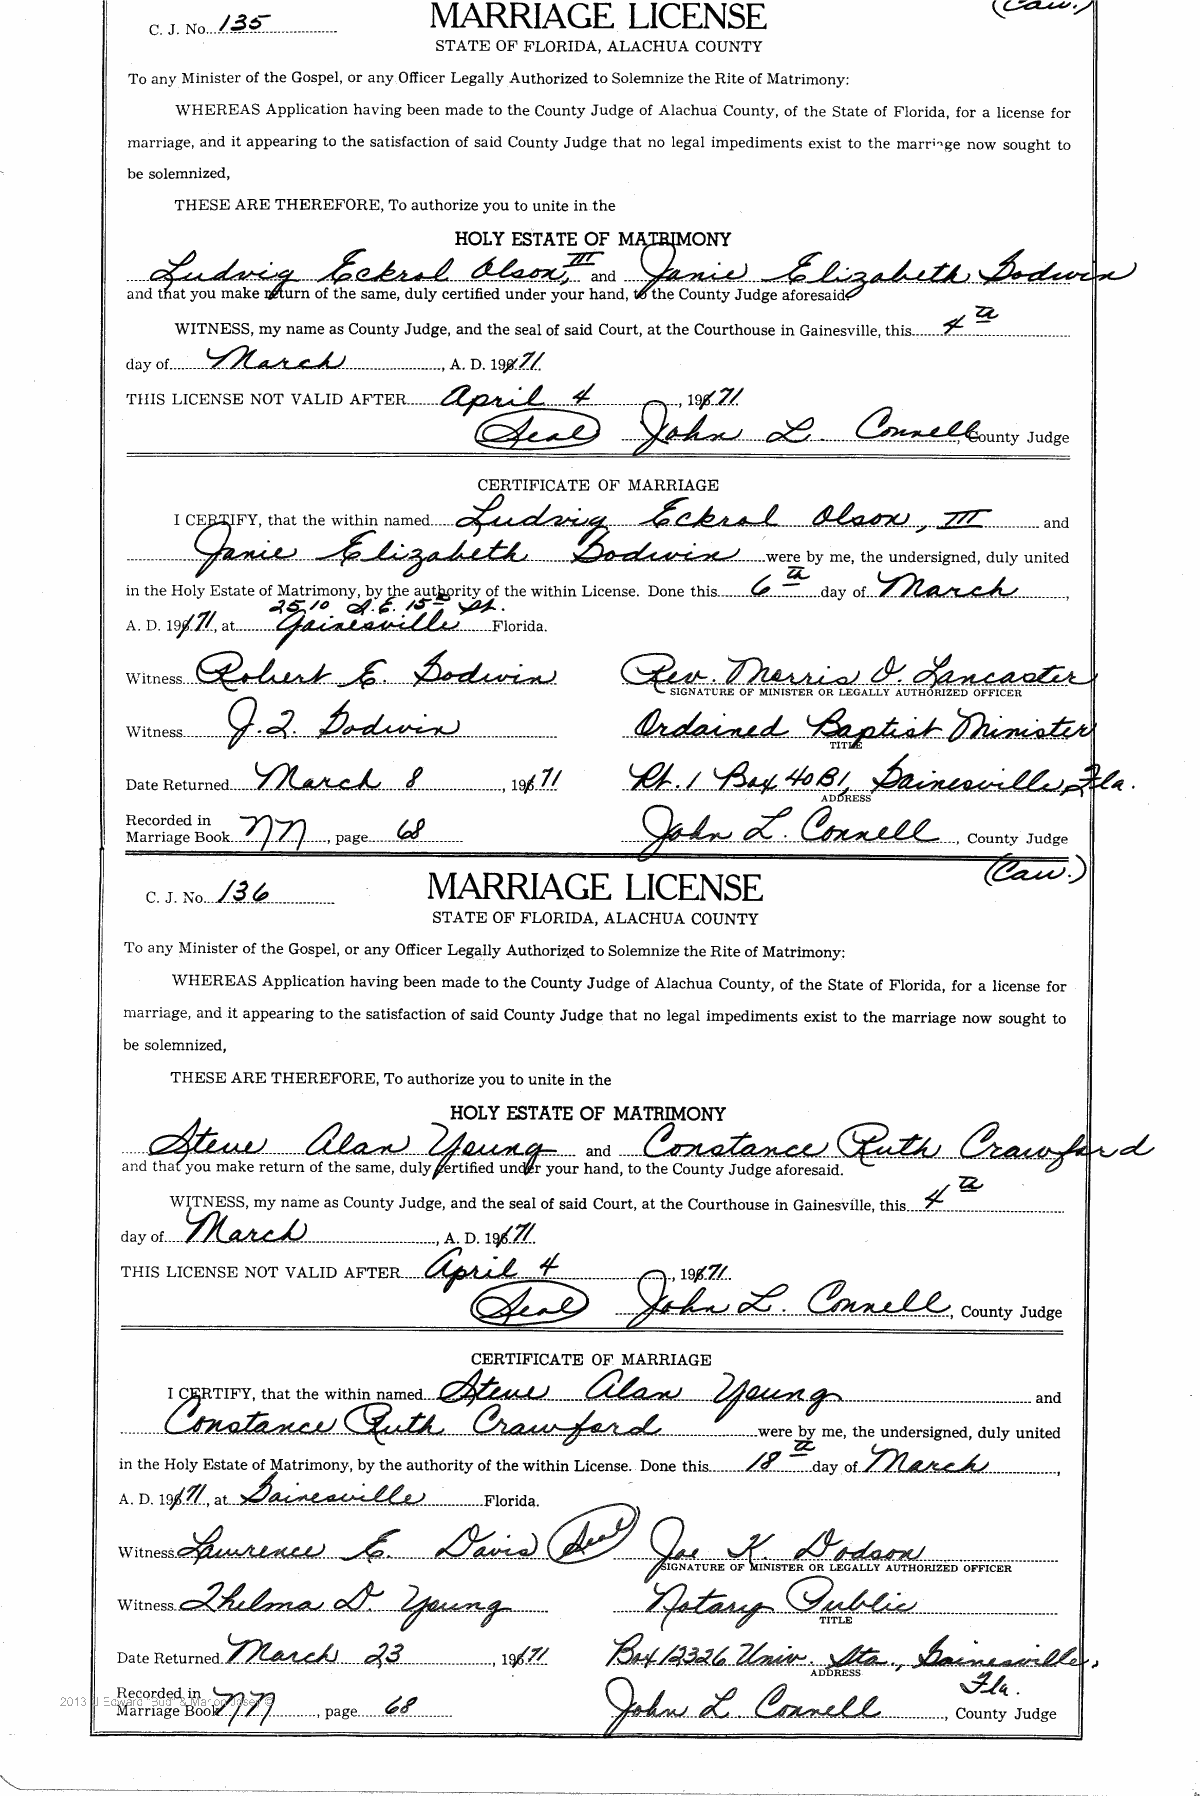 (Caw.)
C. J. No. 135
MARRIAGE LICENSE
STATE OF FLORIDA, ALACHUA COUNTY
To any Minister of the Gospel, or any Officer Legally Authorized to Solemnize the Rite of Matrimony:
WHEREAS Application having been made to the County Judge of Alachua County, of the State of Florida, for a license for
marriage, and it appearing to the satisfaction of said County Judge that no legal impediments exist to the marriage now sought to
be solemnized,
THESE ARE THEREFORE, To authorize you to unite in the
HOLY ESTATE OF MATRIMONY
Ludvig Eckrol Olson, III and Janie Elizabeth Godwin
and that you make return of the same, duly certified under your hand, to the County Judge aforesaid.
WITNESS, my name as County Judge, and the seal of said Court, at the Courthouse in Gainesville, this 4th
day of March, A. D. 1971.
THIS LICENSE NOT VALID AFTER April 4, 1971
(Seal) John L. Connell, County Judge
CERTIFICATE OF MARRIAGE
I CERTIFY, that the within named Ludvig Eckrol Olson, III and
Janie Elizabeth Godwin were by me, the undersigned, duly united
in the Holy Estate of Matrimony, by the authority of the within License. Done this 6th day of March,
2510 S.E. 15th St.
A. D. 1971, at Gainesville Florida.
Witness Robert E. Godwin Rev. Morris O. Lancaster
SIGNATURE OF MINISTER OR LEGALLY AUTHORIZED OFFICER
Witness J. Q. Godwin Ordained Baptist Minister
TITLE
Date Returned March 8, 1971 Rt. 1 Box 40B1, Gainesville, Fla.
ADDRESS
Recorded in
Marriage Book NN, page 68 John L. Connell, County Judge
(Caw.)
C. J. No. 136
MARRIAGE LICENSE
STATE OF FLORIDA, ALACHUA COUNTY
To any Minister of the Gospel, or any Officer Legally Authorized to Solemnize the Rite of Matrimony:
WHEREAS Application having been made to the County Judge of Alachua County, of the State of Florida, for a license for
marriage, and it appearing to the satisfaction of said County Judge that no legal impediments exist to the marriage now sought to
be solemnized,
THESE ARE THEREFORE, To authorize you to unite in the
HOLY ESTATE OF MATRIMONY
Steve Alan Young and Constance Ruth Crawford
and that you make return of the same, duly certified under your hand, to the County Judge aforesaid.
WITNESS, my name as County Judge, and the seal of said Court, at the Courthouse in Gainesville, this 4th
day of March, A. D. 1971.
THIS LICENSE NOT VALID AFTER April 4, 1971.
(Seal) John L. Connell, County Judge
CERTIFICATE OF MARRIAGE
I CERTIFY, that the within named Steve Alan Young and
Constance Ruth Crawford were by me, the undersigned, duly united
in the Holy Estate of Matrimony, by the authority of the within License. Done this 18th day of March,
A. D. 1971, at Gainesville Florida.
Witness Lawrence E. Davis (Seal) Joe K. Dodson
SIGNATURE OF MINISTER OR LEGALLY AUTHORIZED OFFICER
Witness Thelma D. Young Notary Public
TITLE
Date Returned March 23, 1971 Box 12326 Univ. Sta., Gainesville,
ADDRESS
Fla.
Recorded in
Marriage Book NN, page 68 John L. Connell, County Judge
2013 J Edward "Bud" & Marion